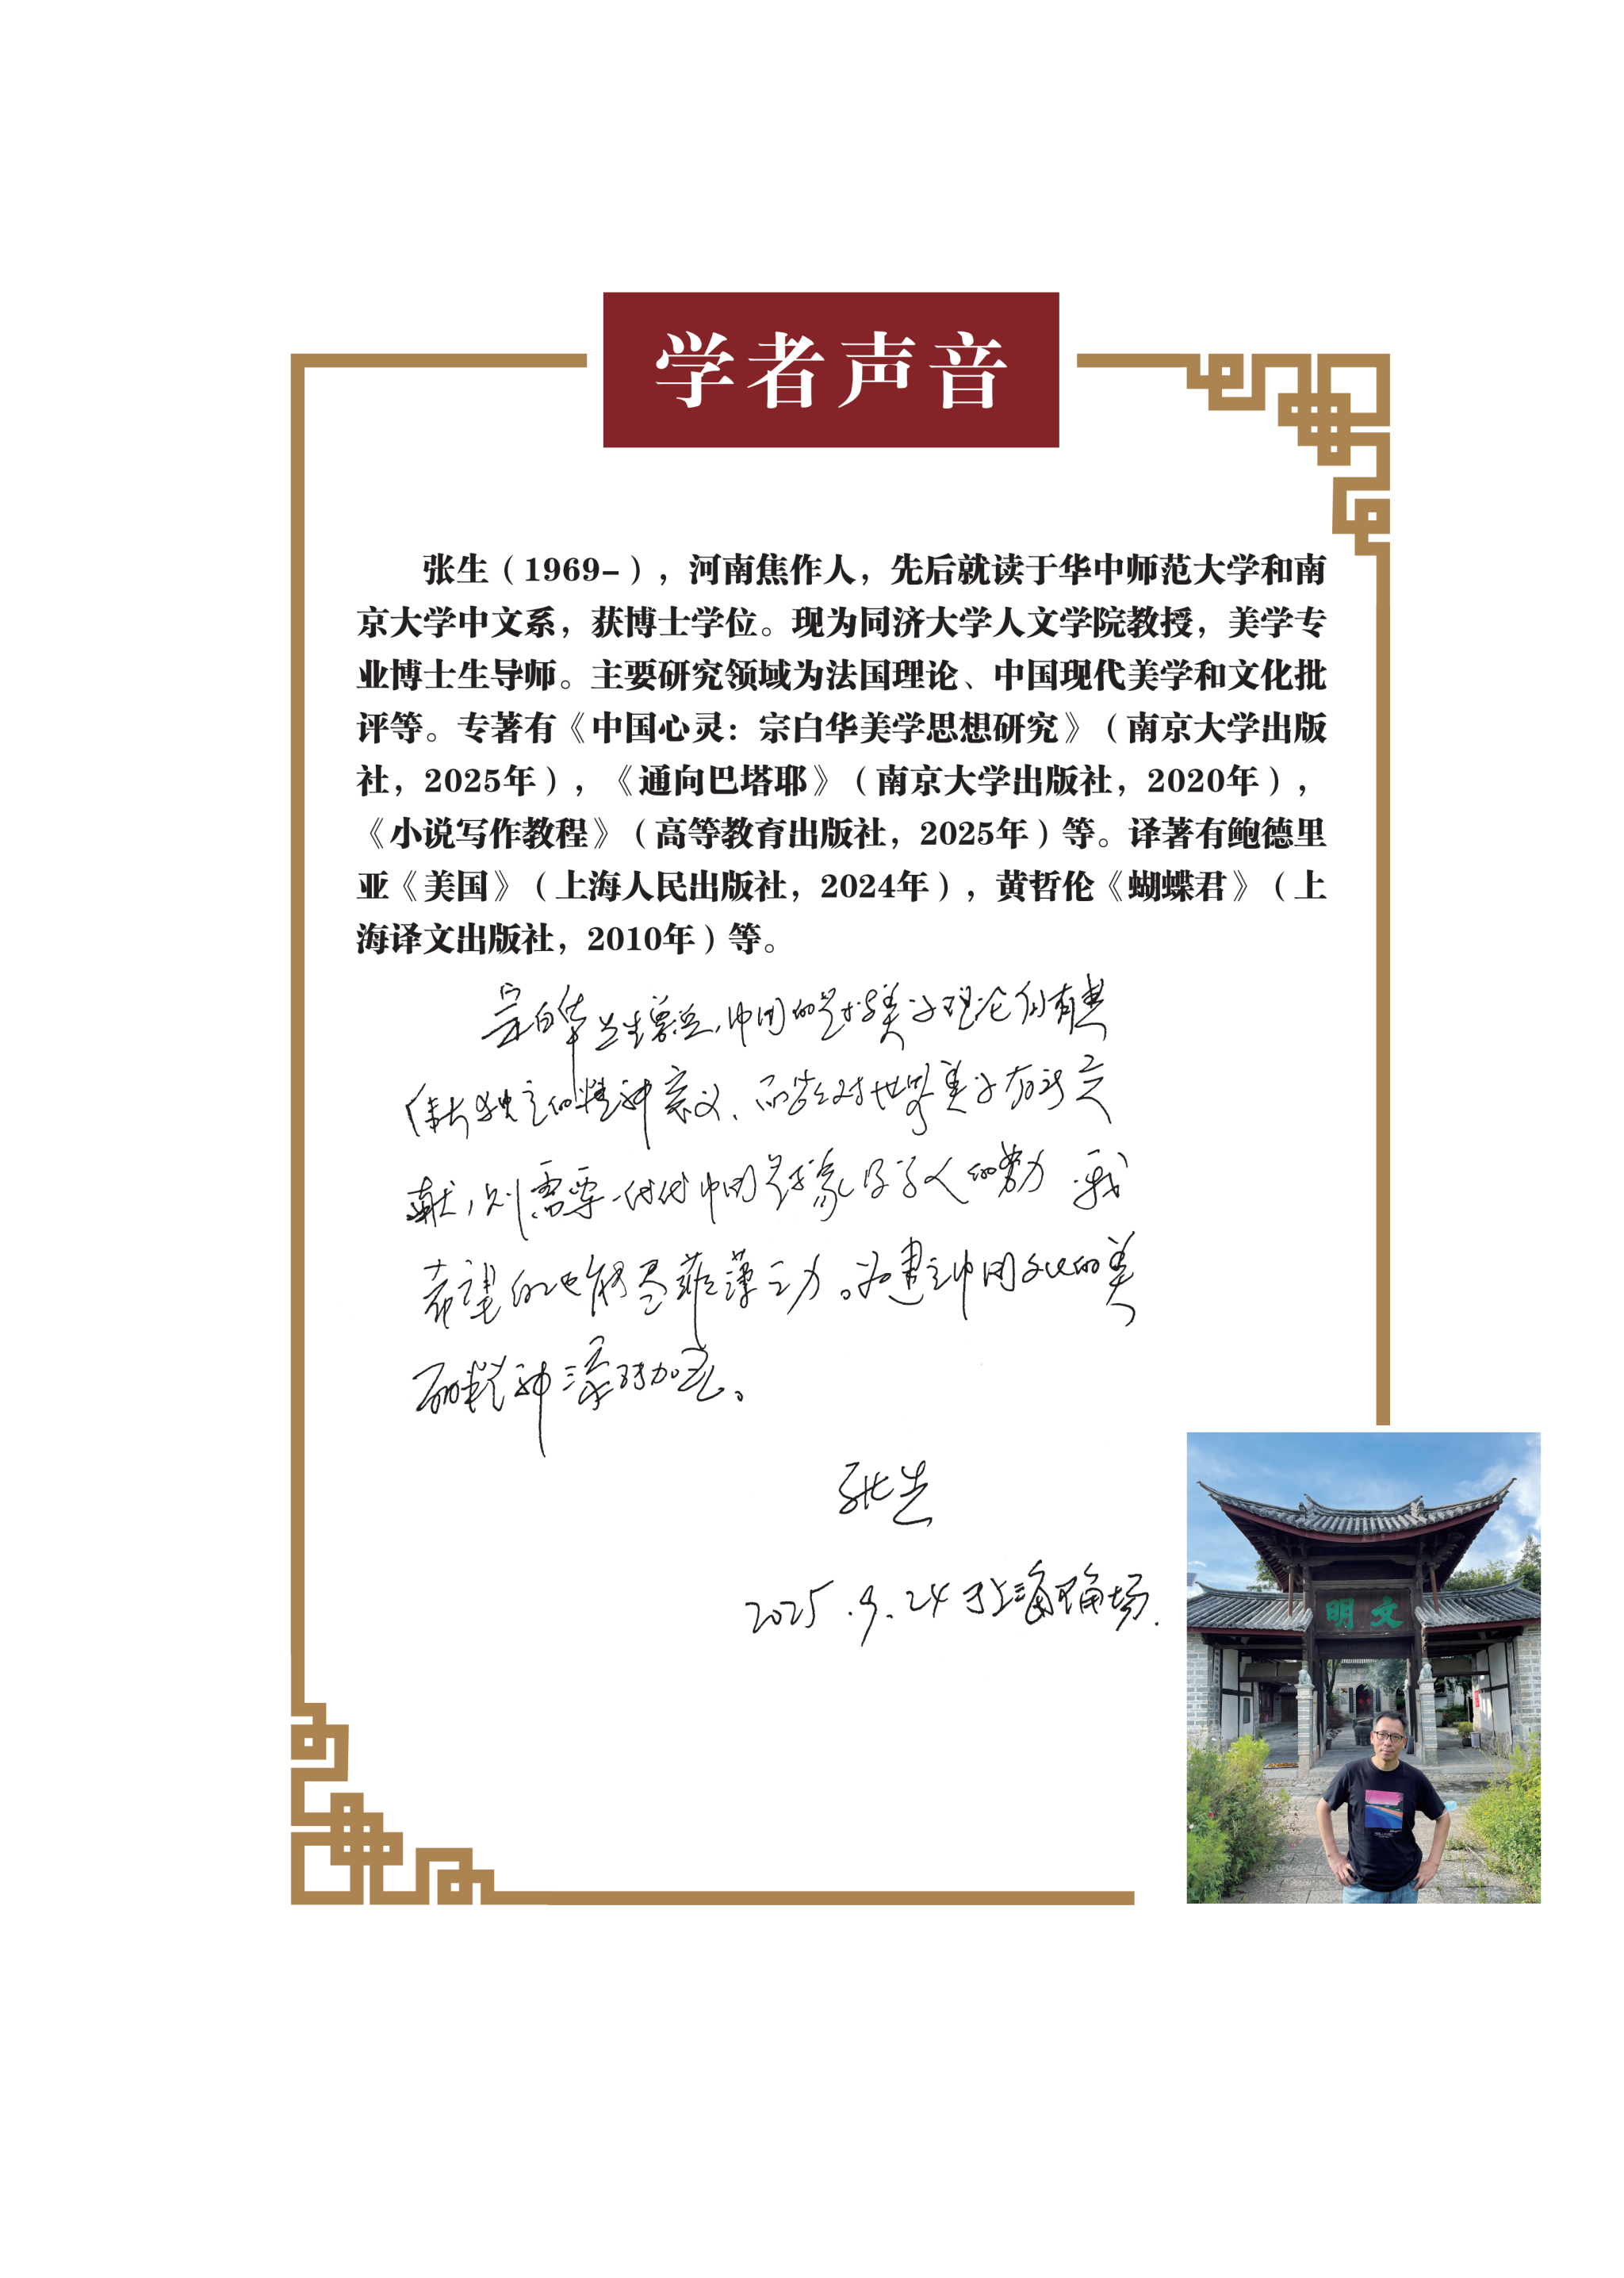 学者声音
张生（1969-），河南焦作人，先后就读于华中师范大学和南
京大学中文系，获博士学位。现为同济大学人文学院教授，美学专
业博士生导师。主要研究领域为法国理论、中国现代美学和文化批
评等。专著有《中国心灵：宗白华美学思想研究》（南京大学出版
社，2025年），《通向巴塔耶》（南京大学出版社，2020年），
《小说写作教程》（高等教育出版社，2025年）等。译著有鲍德里
亚《美国》（上海人民出版社，2024年），黄哲伦《蝴蝶君》（上
海译文出版社，2010年）等。
宗白华先生曾说，中国的艺术与美学理论自有其
伟大独立的精神意义，而欲对世界美学有所贡
献，则需要一代代中国艺术家及学人的努力。我
希望自己也能尽菲薄之力。为建立中国文化的美
丽精神添砖加瓦。
张生
2025.9.24于上海五角场.
明文